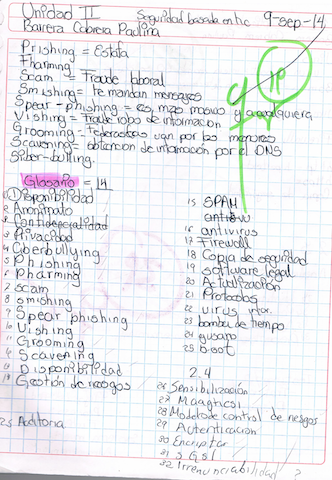 Unidad II Seguridad basada en tic 9-sep-14
Barrera Cabrera Paulina
Prishing = Estafa
Pharming
Scam = Fraude laboral
Smishing = te mandan mensajes
Spear-phishing = es mas masivo y a cualquiera
Vishing = Fraude robo de informacion
Grooming = Pederastas van por los menores
Scavening = obtencion de informacion por el DNS
Siber-bulling.
10
Glosario = 14
Disponibilidad
2 Anonimato
Confidencialidad
3 Privacidad
4 Cberbullying
5 Phishing
6 Pharming
7 Scam
8 smishing
9 Spear phishing
10 Vishing
11 Grooming
Scavening
Disponibilidad
Gestión de riesgos
25 Auditoria
15 SPAM
16 antivirus
17 Firewall
18 Copia de seguridad
19 software legal
20 Actualizacion
21 Protocolos
22 virus
23 bomba de tiempo
24 gusano
25 boot
2.4
26 Sensibilización
27
28 Modelo de control de riesgos
29 Autenticación
30 Encriptar
31 SGSI
32 Irrenunciabilidad ?